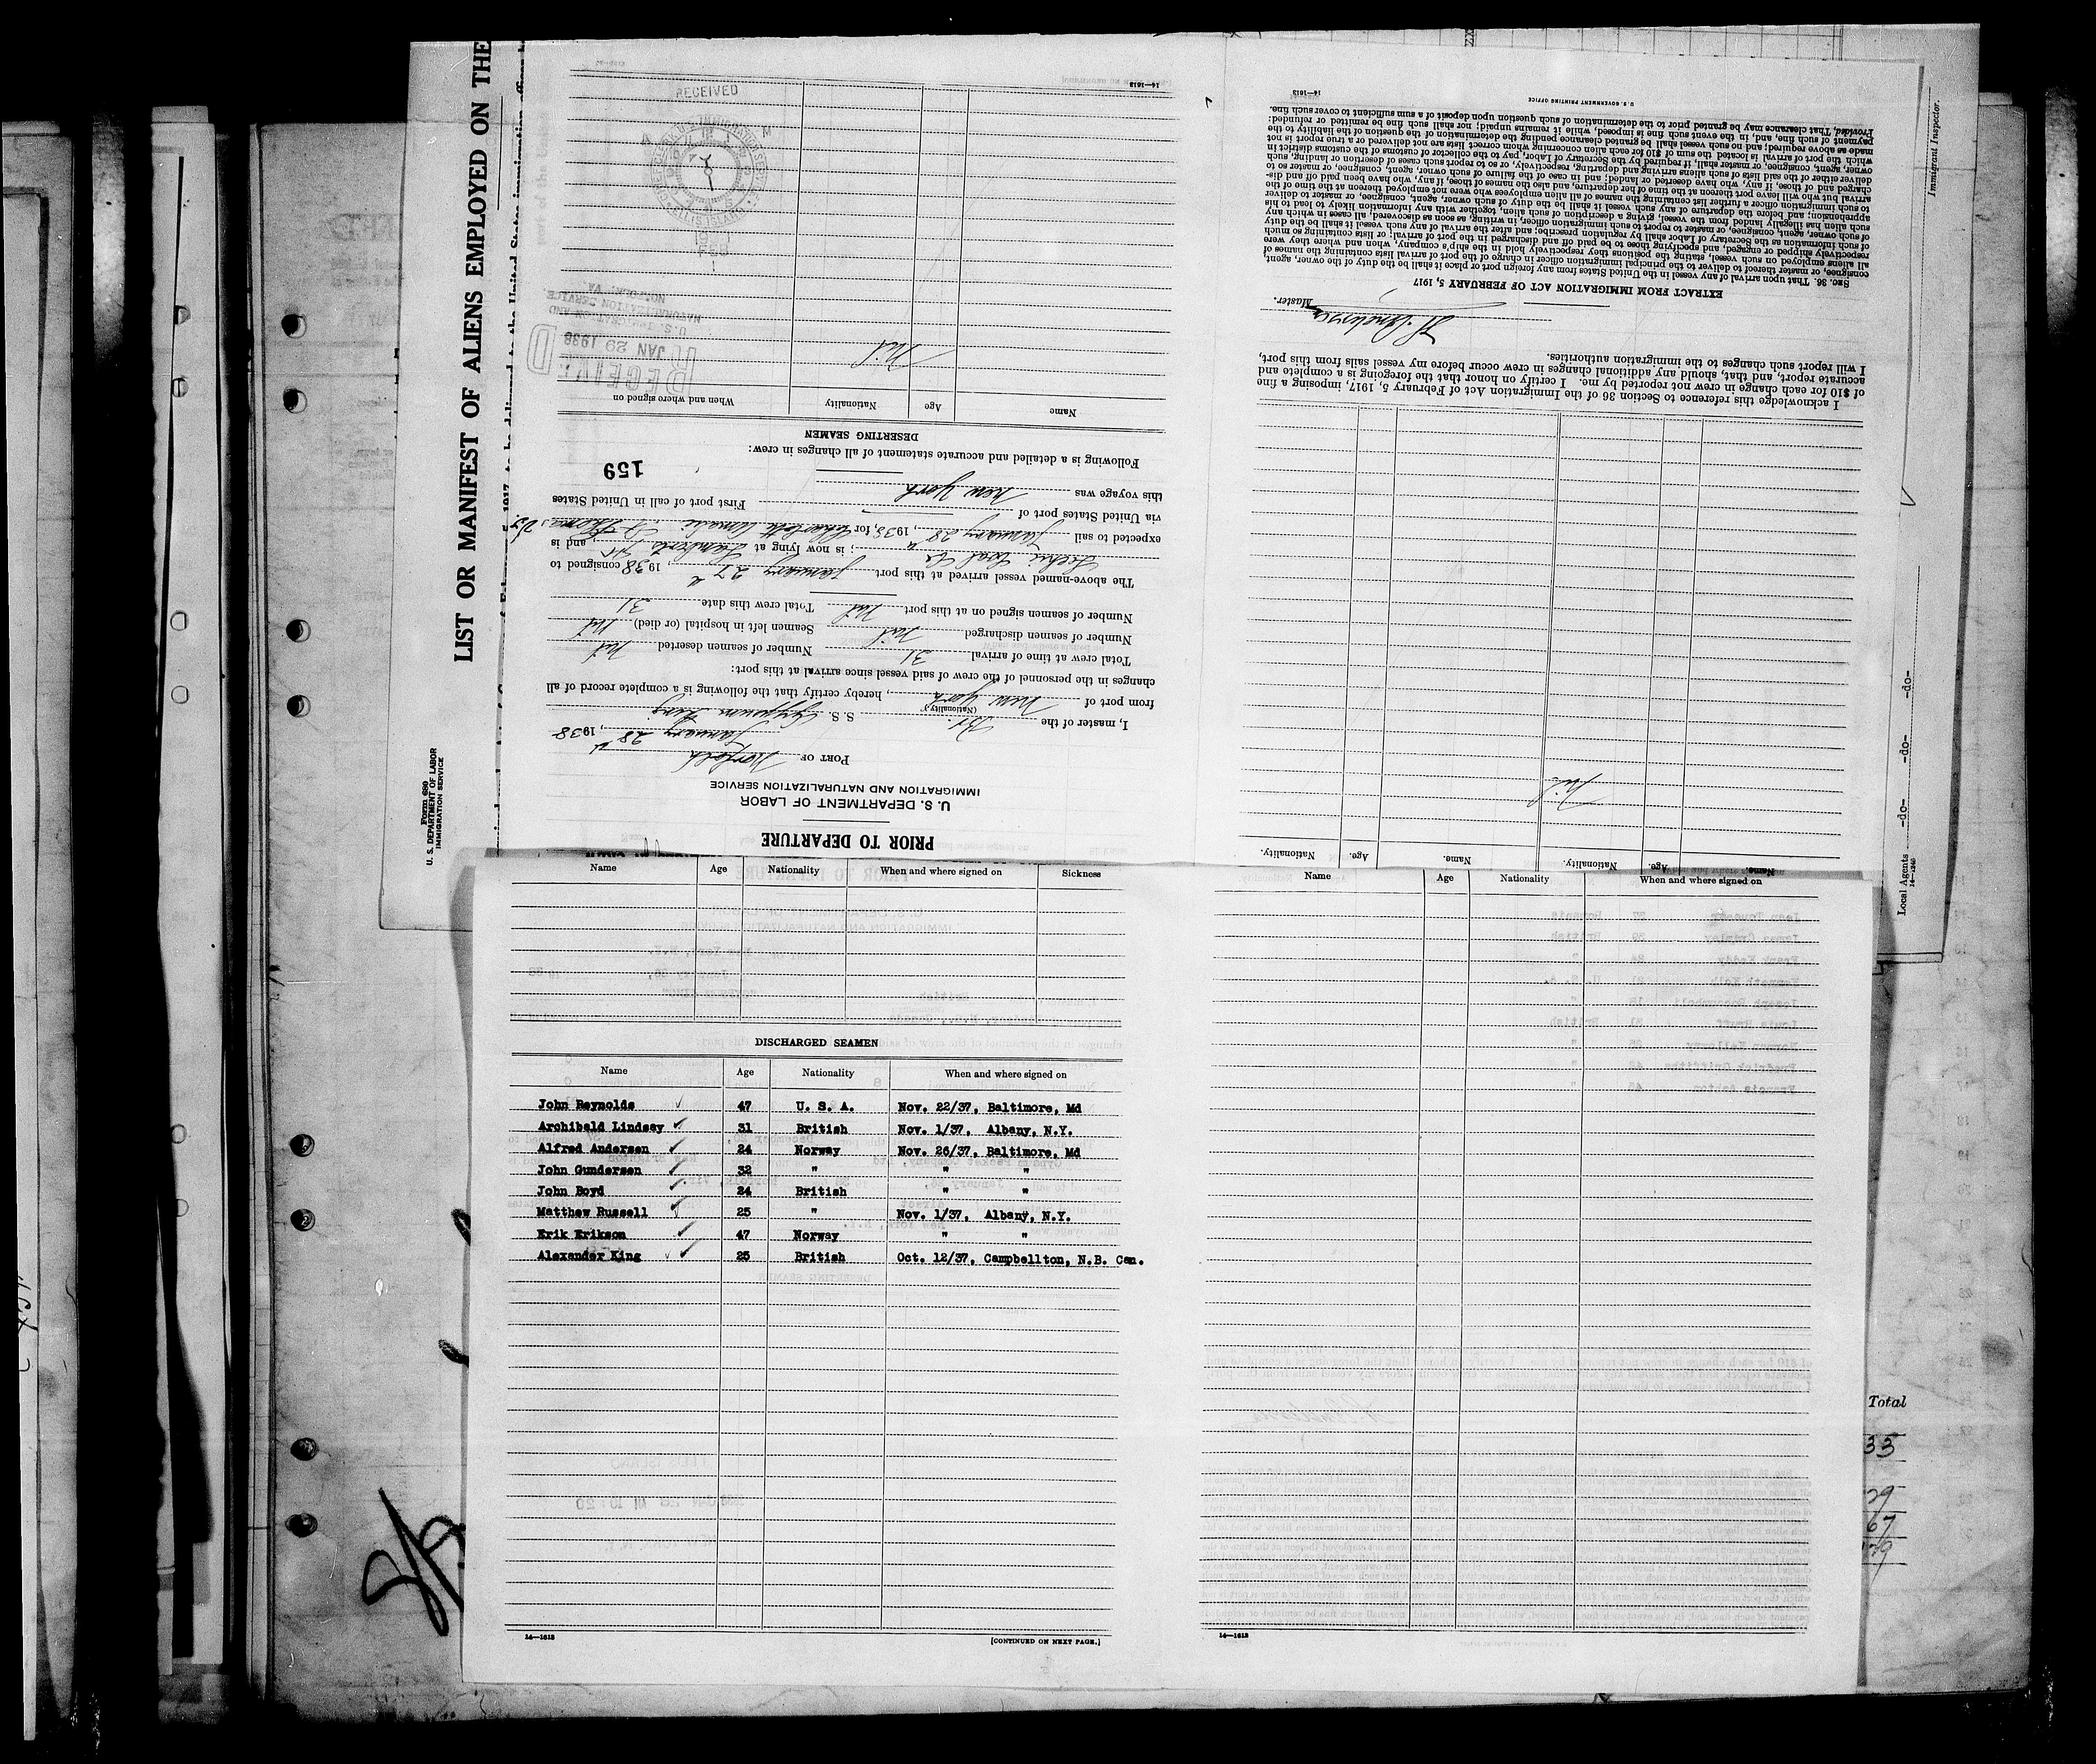 LIST OR MANIFEST OF ALIENS EMPLOYED ON THE
Form 680
U. S. DEPARTMENT OF LABOR
IMMIGRATION SERVICE
Immigrant Inspector.
Local Agents -do- -do- -do-
14—1240
PRIOR TO DEPARTURE
U. S. DEPARTMENT OF LABOR
IMMIGRATION AND NATURALIZATION SERVICE
PORT OF Norfolk
January 28th, 1938
I, master of the Br. S. S. Gypsum King
(Nationality)
from port of New York, hereby certify that the following is a complete record of all
changes in the personnel of the crew of said vessel since arrival at this port:
Total crew at time of arrival 31 Number of seamen deserted Nil
Number of seamen discharged Nil Seamen left in hospital (or died) Nil
Number of seamen signed on at this port Nil Total crew this date 31
The above-named vessel arrived at this port January 27th, 1938 consigned to
Coal Co; is now lying at Lamberts Pt. and is
expected to sail January 28th, 1938, for Charlotte Amalie St Thomas
via United States port of - First port of call in United States
this voyage was New York
159
Following is a detailed and accurate statement of all changes in crew:
DESERTING SEAMEN
Name Age Nationality When and where signed on
Nil
RECEIVED
JAN 29 1938
U.S. IMMIGRATION AND
NATURALIZATION SERVICE.
NORFOLK, VA.
RECEIVED
14—1613
Name. Age. Nationality. Name. Age. Nationality.
Nil
I acknowledge this reference to Section 36 of the Immigration Act of February 5, 1917, imposing a fine
of $10 for each change in crew not reported by me. I certify on honor that the foregoing is a complete and
accurate report, and that, should any additional changes in crew occur before my vessel sails from this port,
I will report such changes to the immigration authorities.
Master.
EXTRACT FROM IMMIGRATION ACT OF FEBRUARY 5, 1917
SEC. 36. That upon arrival of any vessel in the United States from any foreign port or place it shall be the duty of the owner, agent,
consignee, or master thereof to deliver to the principal immigration officer in charge of the port of arrival lists containing the names of
all aliens employed on such vessel, stating the positions they respectively hold in the ship's company, when and where they were
respectively shipped or engaged, and specifying those to be paid off and discharged in the port of arrival; or lists containing so much
of such information as the Secretary of Labor shall by regulation prescribe; and after the arrival of any such vessel it shall be the duty
of such owner, agent, consignee, or master to report to such immigration officer, in writing, as soon as discovered, all cases in which any
such alien has illegally landed from the vessel, giving a description of such alien, together with any information likely to lead to his
apprehension; and before the departure of any such vessel it shall be the duty of such owner, agent, consignee, or master to deliver
to such immigration officer a further list containing the names of all alien employees who were not employed thereon at the time of the
arrival but who will leave port thereon at the time of her departure, and also the names of those, if any, who have been paid off and dis-
charged and of those, if any, who have deserted or landed; and in case of the failure of such owner, agent, consignee, or master so to
deliver either of the said lists of such aliens arriving and departing, respectively, or so to report such cases of desertion or landing, such
owner, agent, consignee, or master, shall, if required by the Secretary of Labor, pay to the collector of customs of the customs district in
which the port of arrival is located the sum of $10 for each alien concerning whom correct lists are not delivered or a true report is not
made as above required; and no such vessel shall be granted clearance pending the determination of the question of the liability to the
payment of such fine, and, in the event such fine is imposed, while it remains unpaid; nor shall such fine be remitted or refunded:
Provided, That clearance may be granted prior to the determination of such question upon deposit of a sum sufficient to cover such fine.
U. S. GOVERNMENT PRINTING OFFICE
14—1613
Name Age Nationality When and where signed on Sickness
DISCHARGED SEAMEN
Name Age Nationality When and where signed on
John Reynolds 47 U. S. A. Nov. 22/37, Baltimore, Md
Archibald Lindsay 31 British Nov. 1/37, Albany, N.Y.
Alfred Andersen 24 Norway Nov. 26/37, Baltimore, Md
John Gundersen 32 " " "
John Boyd 24 British " "
Matthew Russell 25 " Nov. 1/37, Albany, N.Y.
Erik Erikson 47 Norway " "
Alexander King 25 British Oct. 12/37, Campbellton, N.B. Can.
14—1613
[CONTINUED ON NEXT PAGE.]
Name Age Nationality When and where signed on
14—1613
Total
33
29
67
29